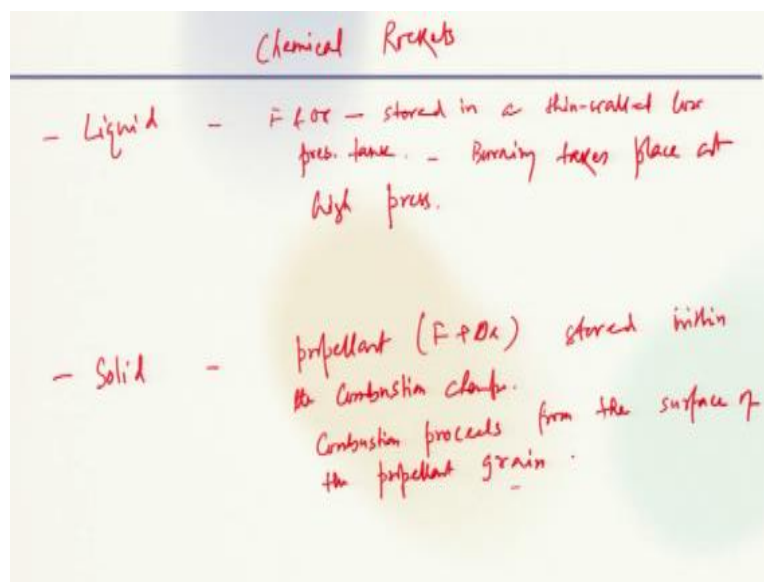 Chemical Rockets
- Liquid - F & Ox - stored in a thin-walled low
pres. tank. - Burning takes place at
high press.
- Solid - propellant (F + Ox) stored within
the Combustion chamber.
Combustion proceeds from the surface of
the propellant grain.